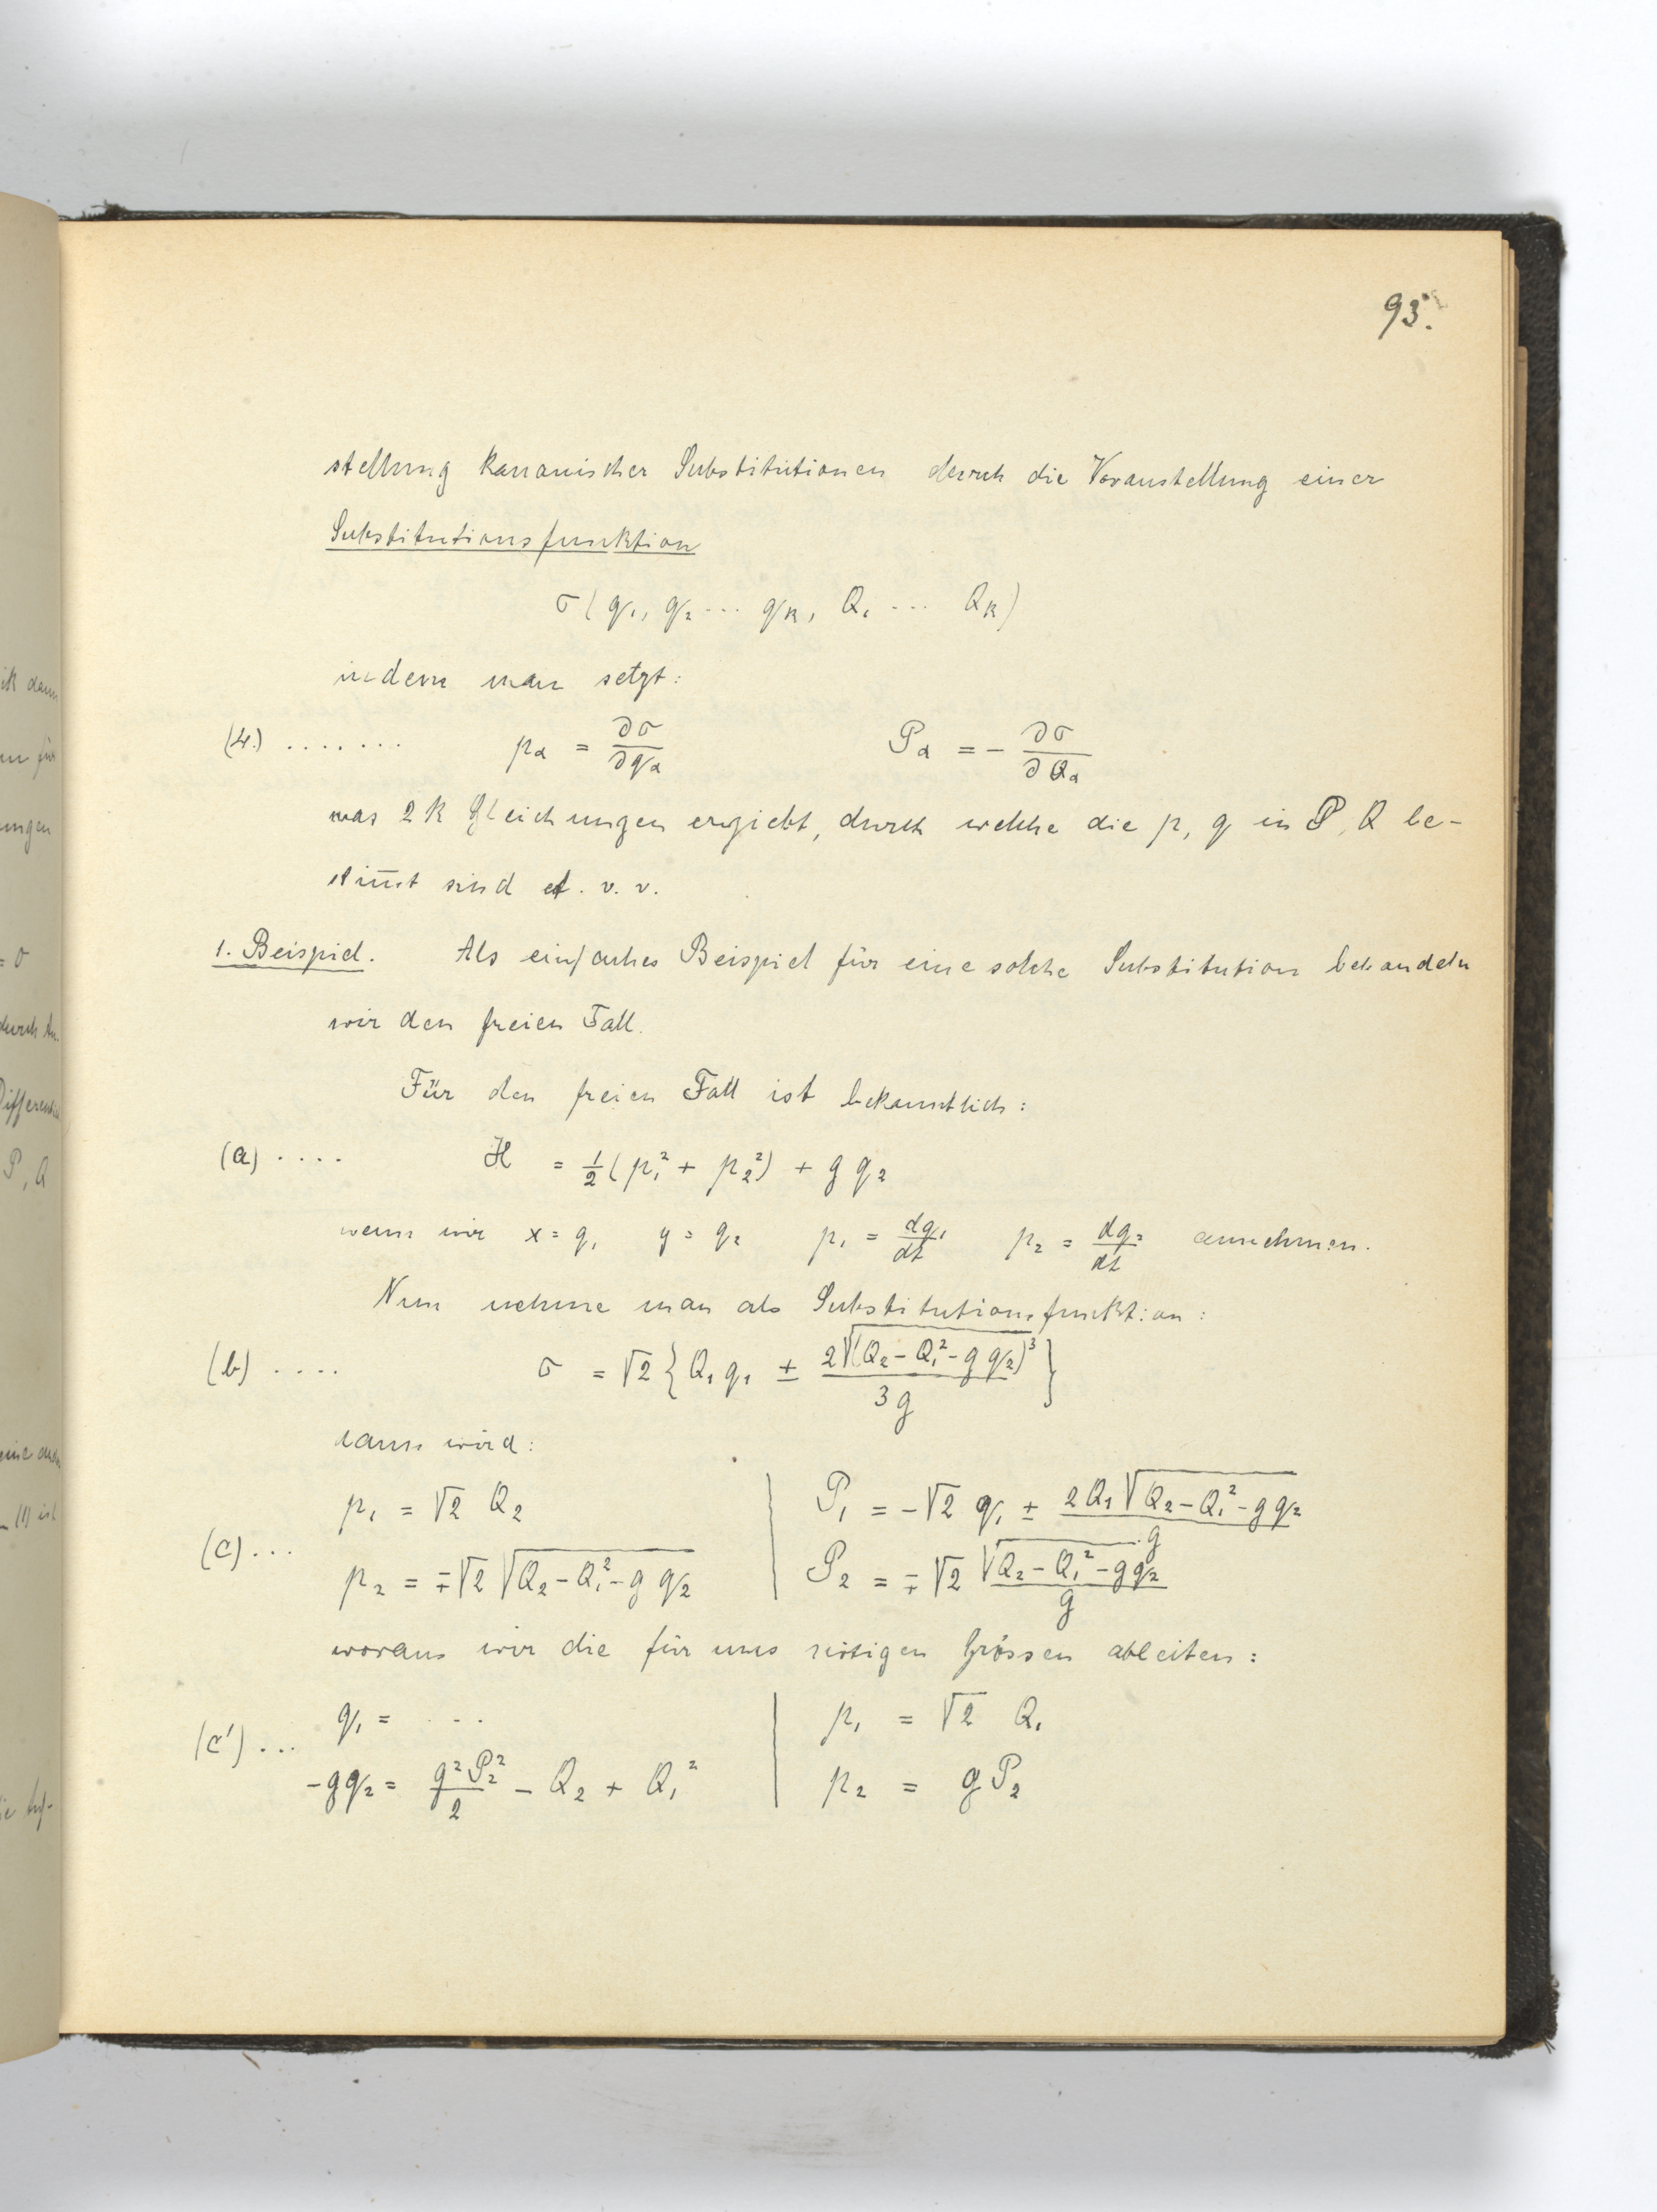 93.
stellung kanonischer Substitutionen durch die Voranstellung einer
Substitutionsfunktion
σ(q₁, q₂ ... qₖ, Q₁ ... Qₖ)
indem man setzt:
(4.) ....... p_α = ∂σ/∂q_α P_α = - ∂σ/∂Q_α
was 2k Gleichungen ergiebt, durch welche die p, q in P, Q be-
stim̅t sind et. v. v.
1. Beispiel. Als einfaches Beispiel für eine solche Substitution behandeln
wir den freien Fall.
Für den freien Fall ist bekanntlich:
(a) .... H = 1/2 (p₁² + p₂²) + g q₂
wenn wir x = q₁ y = q₂ p₁ = dq₁/dt p₂ = dq₂/dt annehmen.
Nun nehme man als Substitutionsfunktion:
(b) .... σ = √2 {Q₁ q₁ ± 2√(Q₂ - Q₁² - g q₂)³ / 3g}
dann wird:
p₁ = √2 Q₂ | P₁ = -√2 q₁ ± 2Q₁√(Q₂ - Q₁² - g q₂) / g
(c) ... p₂ = ∓√2 √(Q₂ - Q₁² - g q₂) | P₂ = ∓√2 √(Q₂ - Q₁² - g q₂) / g
woraus wir die für uns nötigen Grössen ableiten:
q₁ = ... | p₁ = √2 Q₁
(c') ... -g q₂ = g² P₂² / 2 - Q₂ + Q₁² | p₂ = g P₂
ik dann
ungen
durch
P, Q